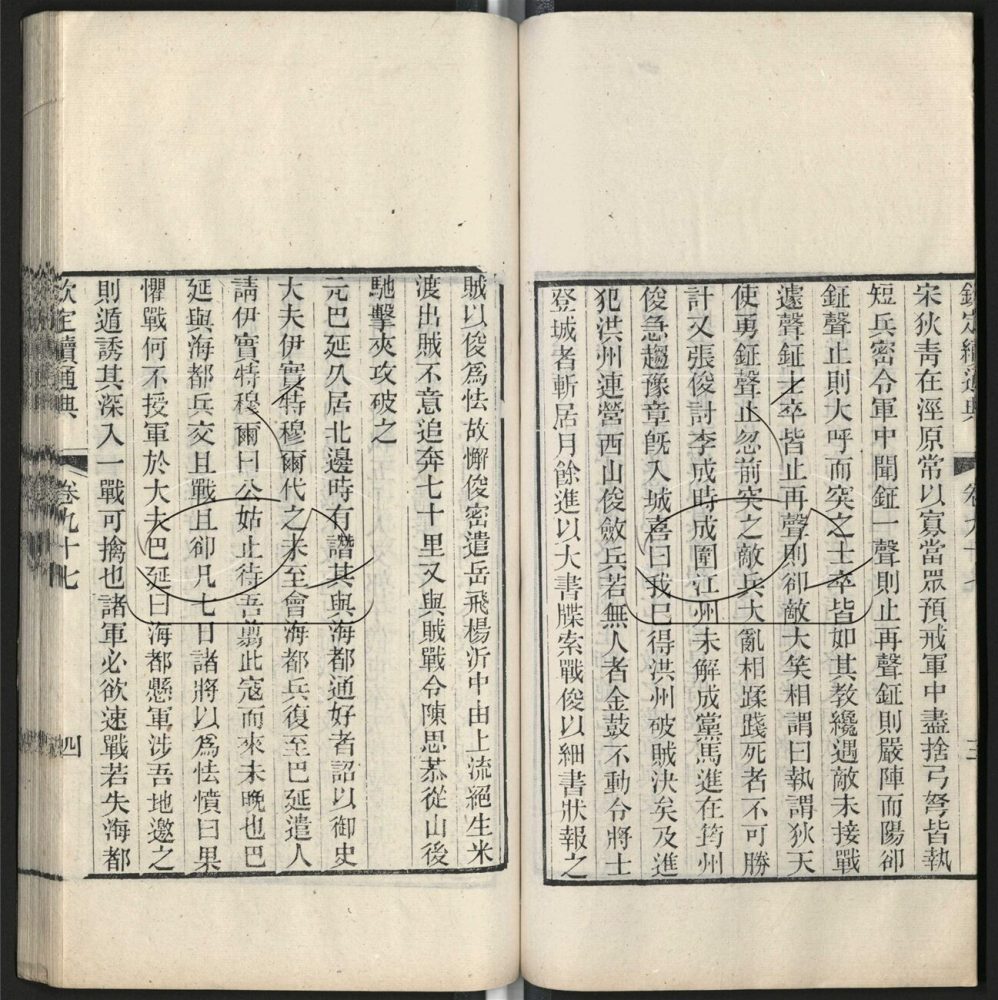 欽定續通典
卷九十七
三
宋狄靑在涇原常以寡當眾預戒軍中盡捨弓弩皆執
短兵密令軍中聞鉦一聲則止再聲鉦則嚴陣而陽卻
鉦聲止則大呼而突之士卒皆如其教纔遇敵未接戰
遽聲鉦士卒皆止再聲則卻敵大笑相謂曰執謂狄天
使勇鉦聲止忽前突之敵兵大亂相蹂踐死者不可勝
計又張俊討李成時成圍江州未解成黨馬進在筠州
俊急趨豫章旣入城喜曰我已得洪州破賊決矣及進
犯洪州連營西山俊斂兵若無人者金鼓不動令將士
登城者斬居月餘進以大書牒索戰俊以細書狀報之
賊以俊爲怯故懈俊密遣岳飛楊沂中由上流絕生米
渡出賊不意追奔七十里又與賊戰令陳思恭從山後
馳擊夾攻破之
元巴延久居北邊時有譖其與海都通好者詔以御史
大夫伊實特穆爾代之未至會海都兵復至巴延遣人
請伊實特穆爾曰公姑止待吾翦此寇而來未晚也巴
延與海都兵交且戰且卻凡七日諸將以爲怯憤曰果
懼戰何不授軍於大夫巴延曰海都懸軍涉吾地邀之
則遁誘其深入一戰可擒也諸軍必欲速戰若失海都
欽定續通典
卷九十七
四